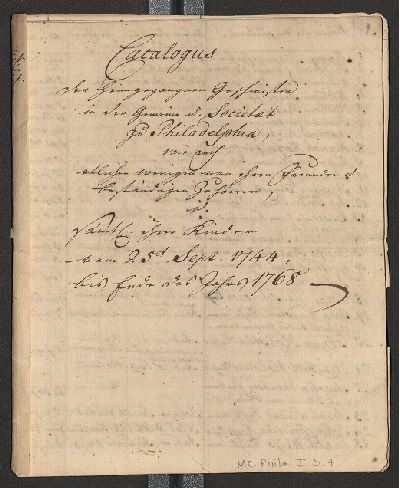 Catalogus
der heimgegangenen Geschwister
in der Gemeine u. Societät
zu Philadelphia,
wie auch
etliche wenige von ihren Freunden u
beständigen Zuhörern,
u.
sämtl. ihrer Kinder
vom 25t Sept. 1744.
bis Ende des Jahrs 1768
MC. Phila. I 3.4